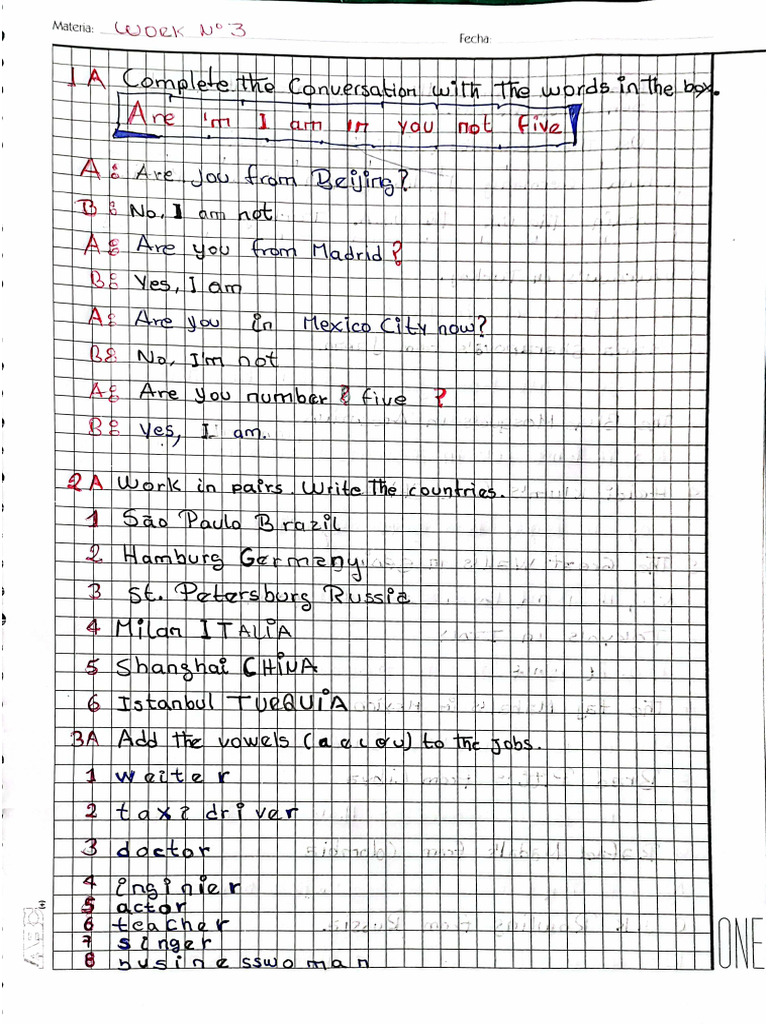 Materia: WORK Nº 3
Fecha:
1 A Complete the Conversation with the words in the box.
Are 'm I am in you not five
A: Are you from Beijing?
B: No, I am not
A: Are you from Madrid?
B: Yes, I am
A: Are you in Mexico City now?
B: No, I'm not
A: Are you number five ?
B: Yes, I am.
2A Work in pairs. Write the countries.
1 São Paulo Brazil
2 Hamburg Germeny
3 St. Petersburg Russia
4 Milan ITALiA
5 Shanghai CHiNA
6 Istanbul TURQUiA
3A Add the vowels (a e i o u) to the jobs.
1 waiter
2 taxi driver
3 doctor
4 inginier
5 actor
6 teacher
7 singer
8 businesswoman
ONE